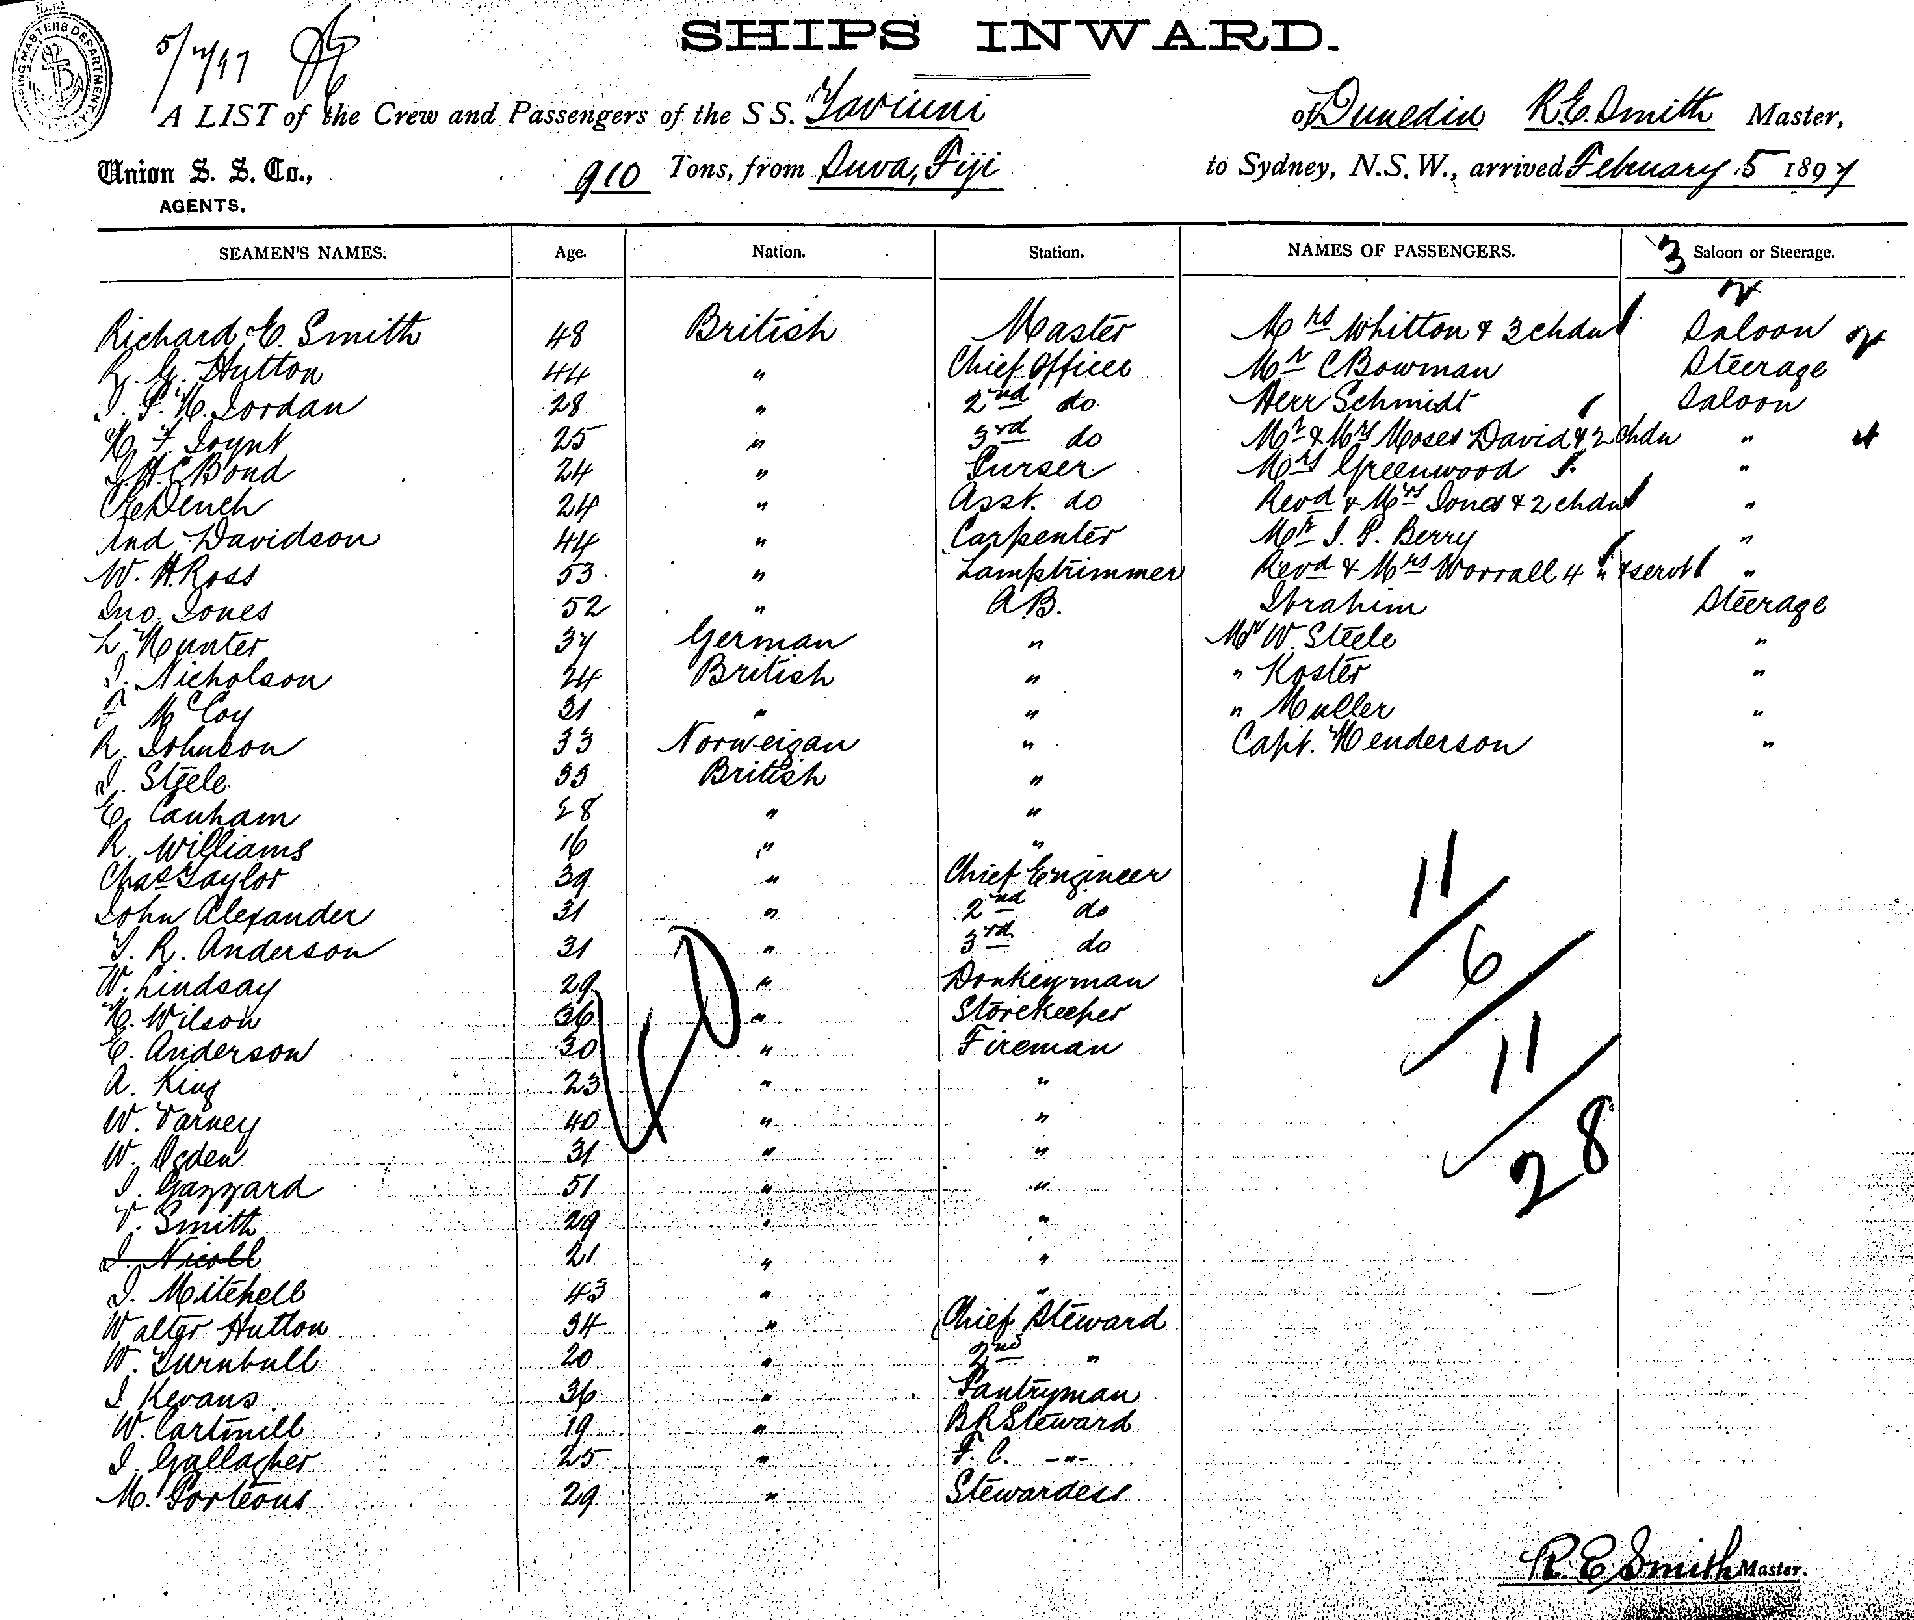 SHIPS INWARD.
5/2/97
A LIST of the Crew and Passengers of the S S. Taviuni of Dunedin R.E. Smith Master,
Union S. S. Co., AGENTS.
910 Tons, from Suva, Fiji to Sydney, N.S.W., arrived February 5 1897
SEAMEN'S NAMES. Age. Nation. Station. NAMES OF PASSENGERS. 3 Saloon or Steerage.
Richard E. Smith 48 British Master Mrs Whitton & 3 chdn Saloon
G. Hutton 44 " Chief Officer Mr C Bowman Steerage
Jordan 28 " 2nd do Herr Schmidt Saloon
Joynt 25 " 3rd do Mr & Mrs Moses David & 2 chdn "
Bond 24 " Purser Mrs Greenwood "
Dench 24 " Asst. do Revd & Mrs Jones & 2 chdn "
And Davidson 44 " Carpenter Mr J. P. Berry "
W. H. Ross 53 " Lamptrimmer Revd & Mrs Worrall 4 " & servt "
Jno. Jones 52 " A.B. Ibrahim Steerage
L. Hunter 37 German " Mr W. Steele "
J. Nicholson 24 British " " Koster "
F. McCoy 31 " " " Muller "
R. Johnson 33 Norweigan " Capt. Henderson "
J. Steele 33 British "
E. Canham 28 " "
R. Williams 16 " "
Chas Taylor 39 " Chief Engineer
John Alexander 31 " 2nd do
T. R. Anderson 31 " 3rd do
W. Lindsay 29 " Donkeyman
H. Wilson 36 " Storekeeper
E. Anderson 30 " Fireman
A. King 23 " "
W. Varney 40 " "
W. Ogden 31 " "
J. Gazzard 51 " "
V. Smith 29 " "
J. Nicoll 21 " "
J. Mitchell 43 " "
Walter Hutton 34 " Chief Steward
W. Turnbull 20 " 2nd "
J Kevans 36 " Pantryman
W. Cartmill 19 " B R Steward
J. Gallagher 25 " F. C. -"-
M. Porteous 29 " Stewardess
11/6/11/28
R. E. Smith Master.